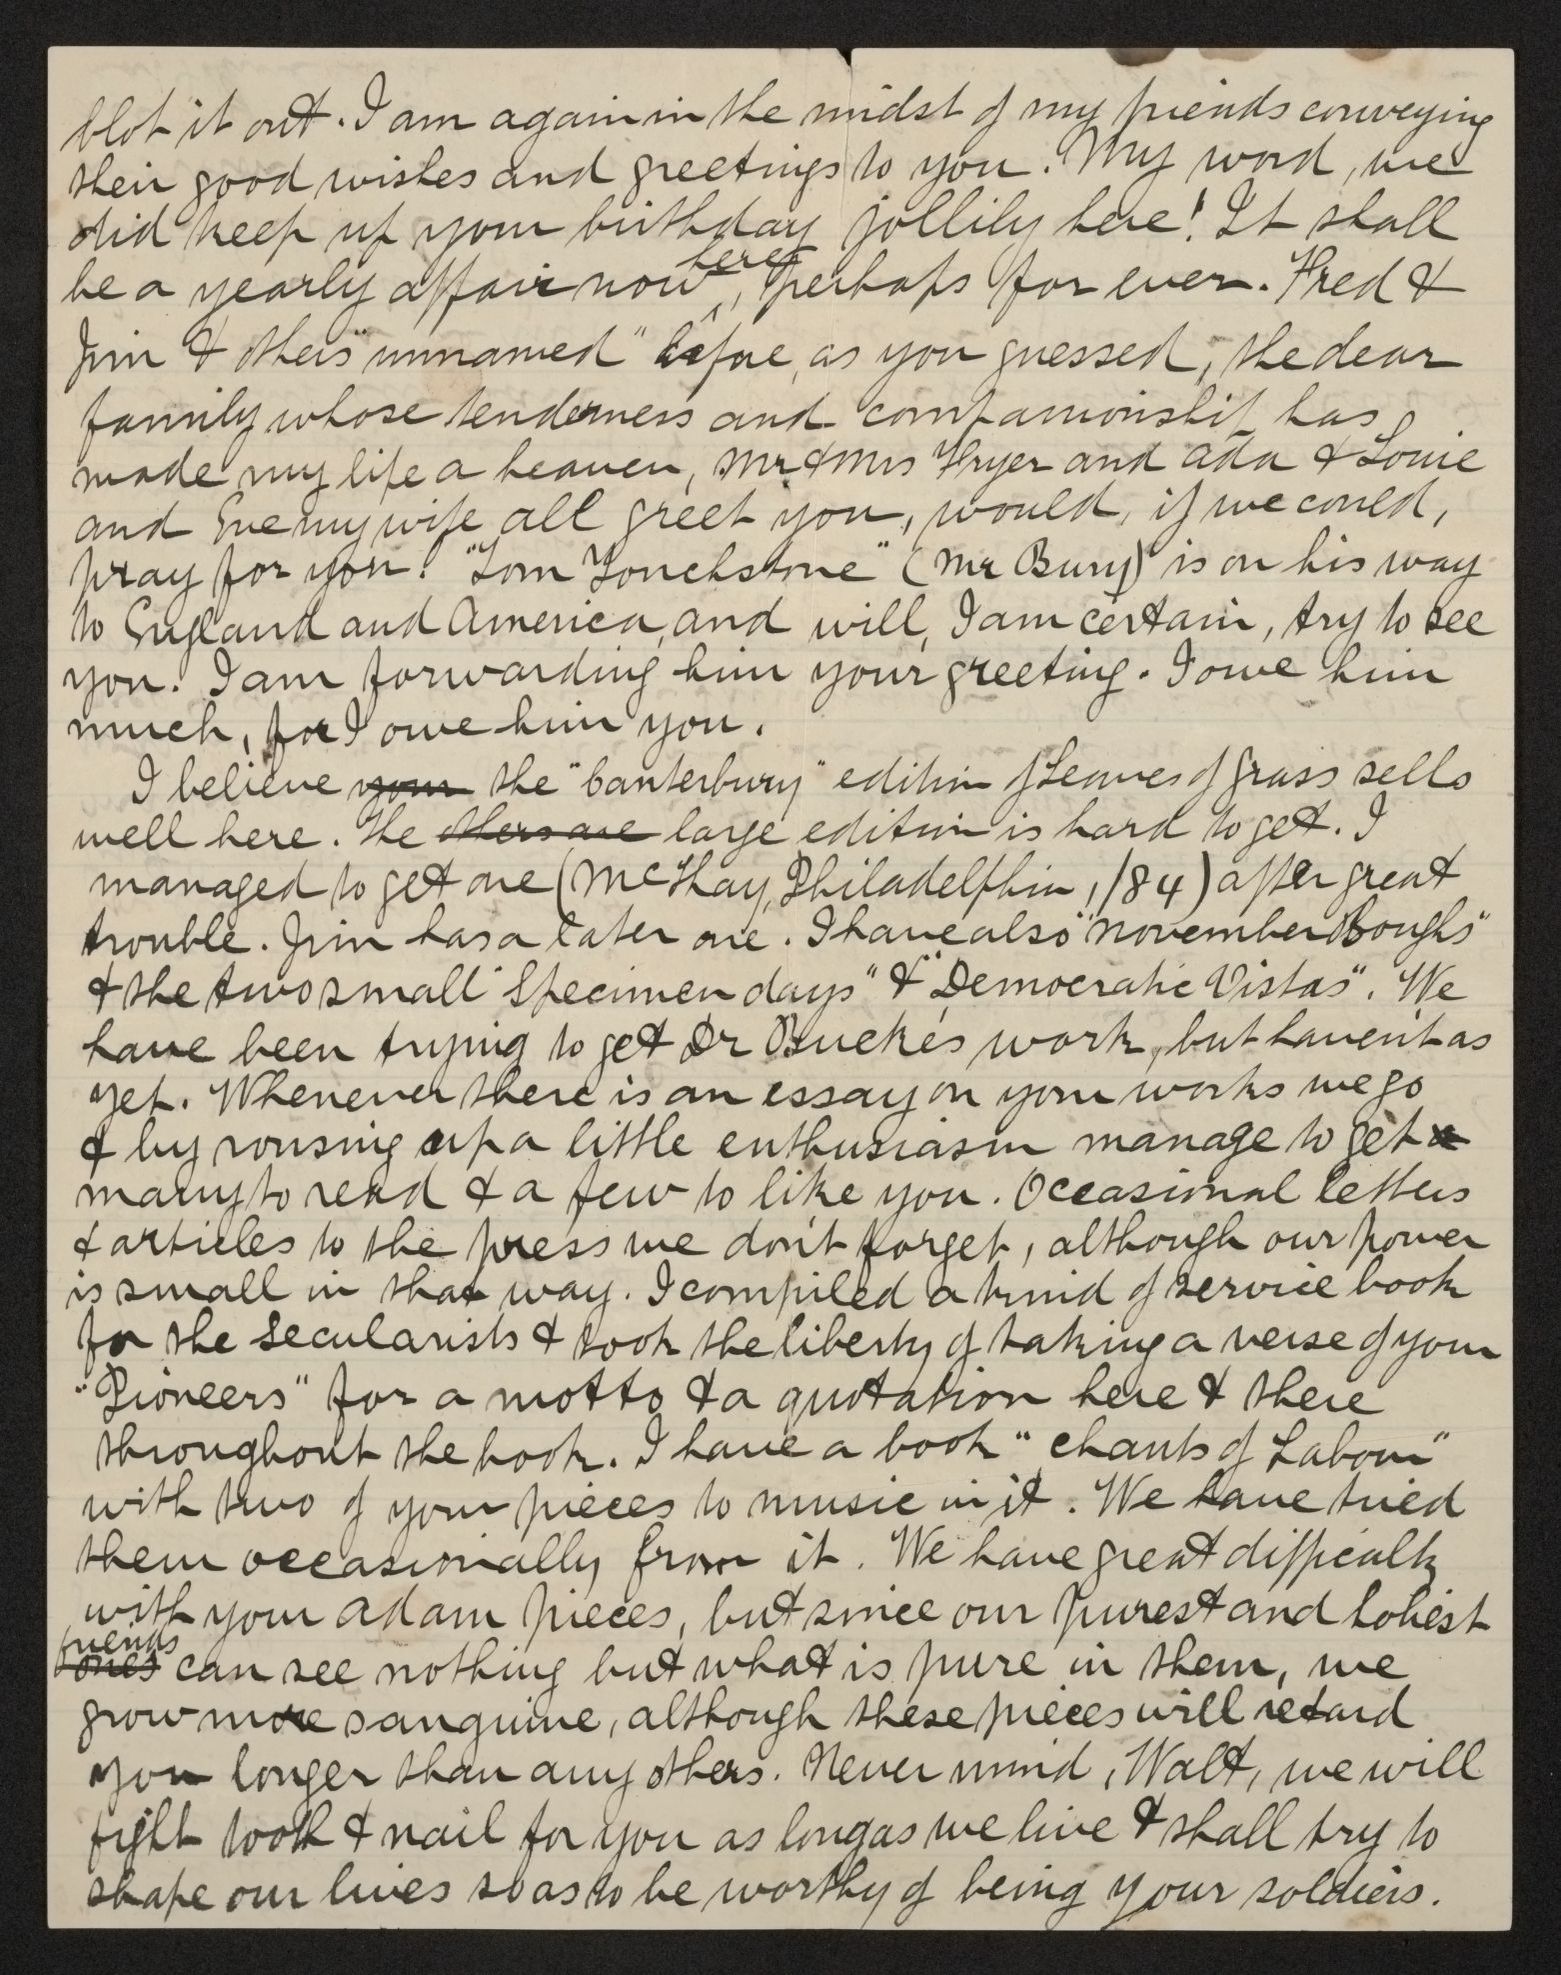 blot it out. I am again in the midst of my friends conveying
their good wishes and greetings to you. My word, we
did keep up your birthday jollily here! It shall
be a yearly affair now here, perhaps for ever. Fred &
Jim & others "unnamed" before, as you guessed, the dear
family whose tenderness and companionship has
made my life a heaven, Mr & Mrs Fryer and Ada & Louie
and Eve my wife all greet you, would, if we could,
pray for you! "Tom Touchstone" (Mr Bury) is on his way
to England and America, and will, I am certain, try to see
you. I am forwarding him your greeting. I owe him
much, for I owe him you.
I believe your the "Canterbury" edition of Leaves of Grass sells
well here. The others are large edition is hard to get. I
managed to get one (McKay, Philadelphia, /84) after great
trouble. Jim has a later one. I have also "November Boughs"
& the two small "Specimen days" & "Democratic Vistas". We
have been trying to get Dr Bucke's work, but haven't as
yet. Whenever there is an essay on your works we go
& by rousing up a little enthusiasm manage to get
many to read & a few to like you. Occasional letters
& articles to the press we don't forget, although our power
is small in that way. I compiled a kind of service book
for the Secularists & took the liberty of taking a verse of your
"Pioneers" for a motto & a quotation here & there
throughout the book. I have a book "Chants of Labour"
with two of your pieces to music in it. We have tried
them occasionally from it. We have great difficulty
with your Adam pieces, but since our purest and holiest
ones friends can see nothing but what is pure in them, we
grow more sanguine, although these pieces will retard
you longer than any others. Never mind, Walt, we will
fight tooth & nail for you as long as we live & shall try to
shape our lives so as to be worthy of being your soldiers.